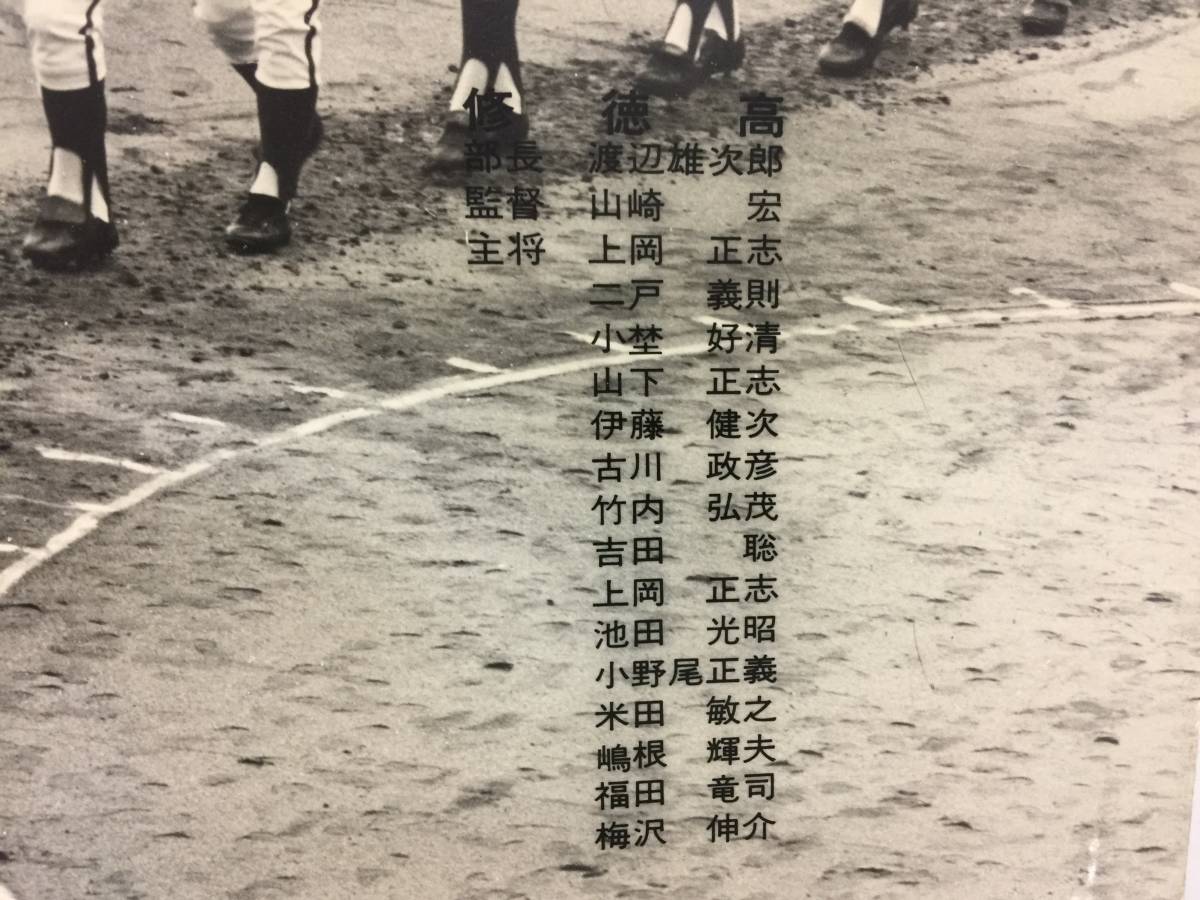 修徳高
部長 渡辺雄次郎
監督 山崎 宏
主将 上岡 正志
二戸 義則
小埜 好清
山下 正志
伊藤 健次
古川 政彦
竹内 弘茂
吉田 聡
上岡 正志
池田 光昭
小野尾正義
米田 敏之
嶋根 輝夫
福田 竜司
梅沢 伸介